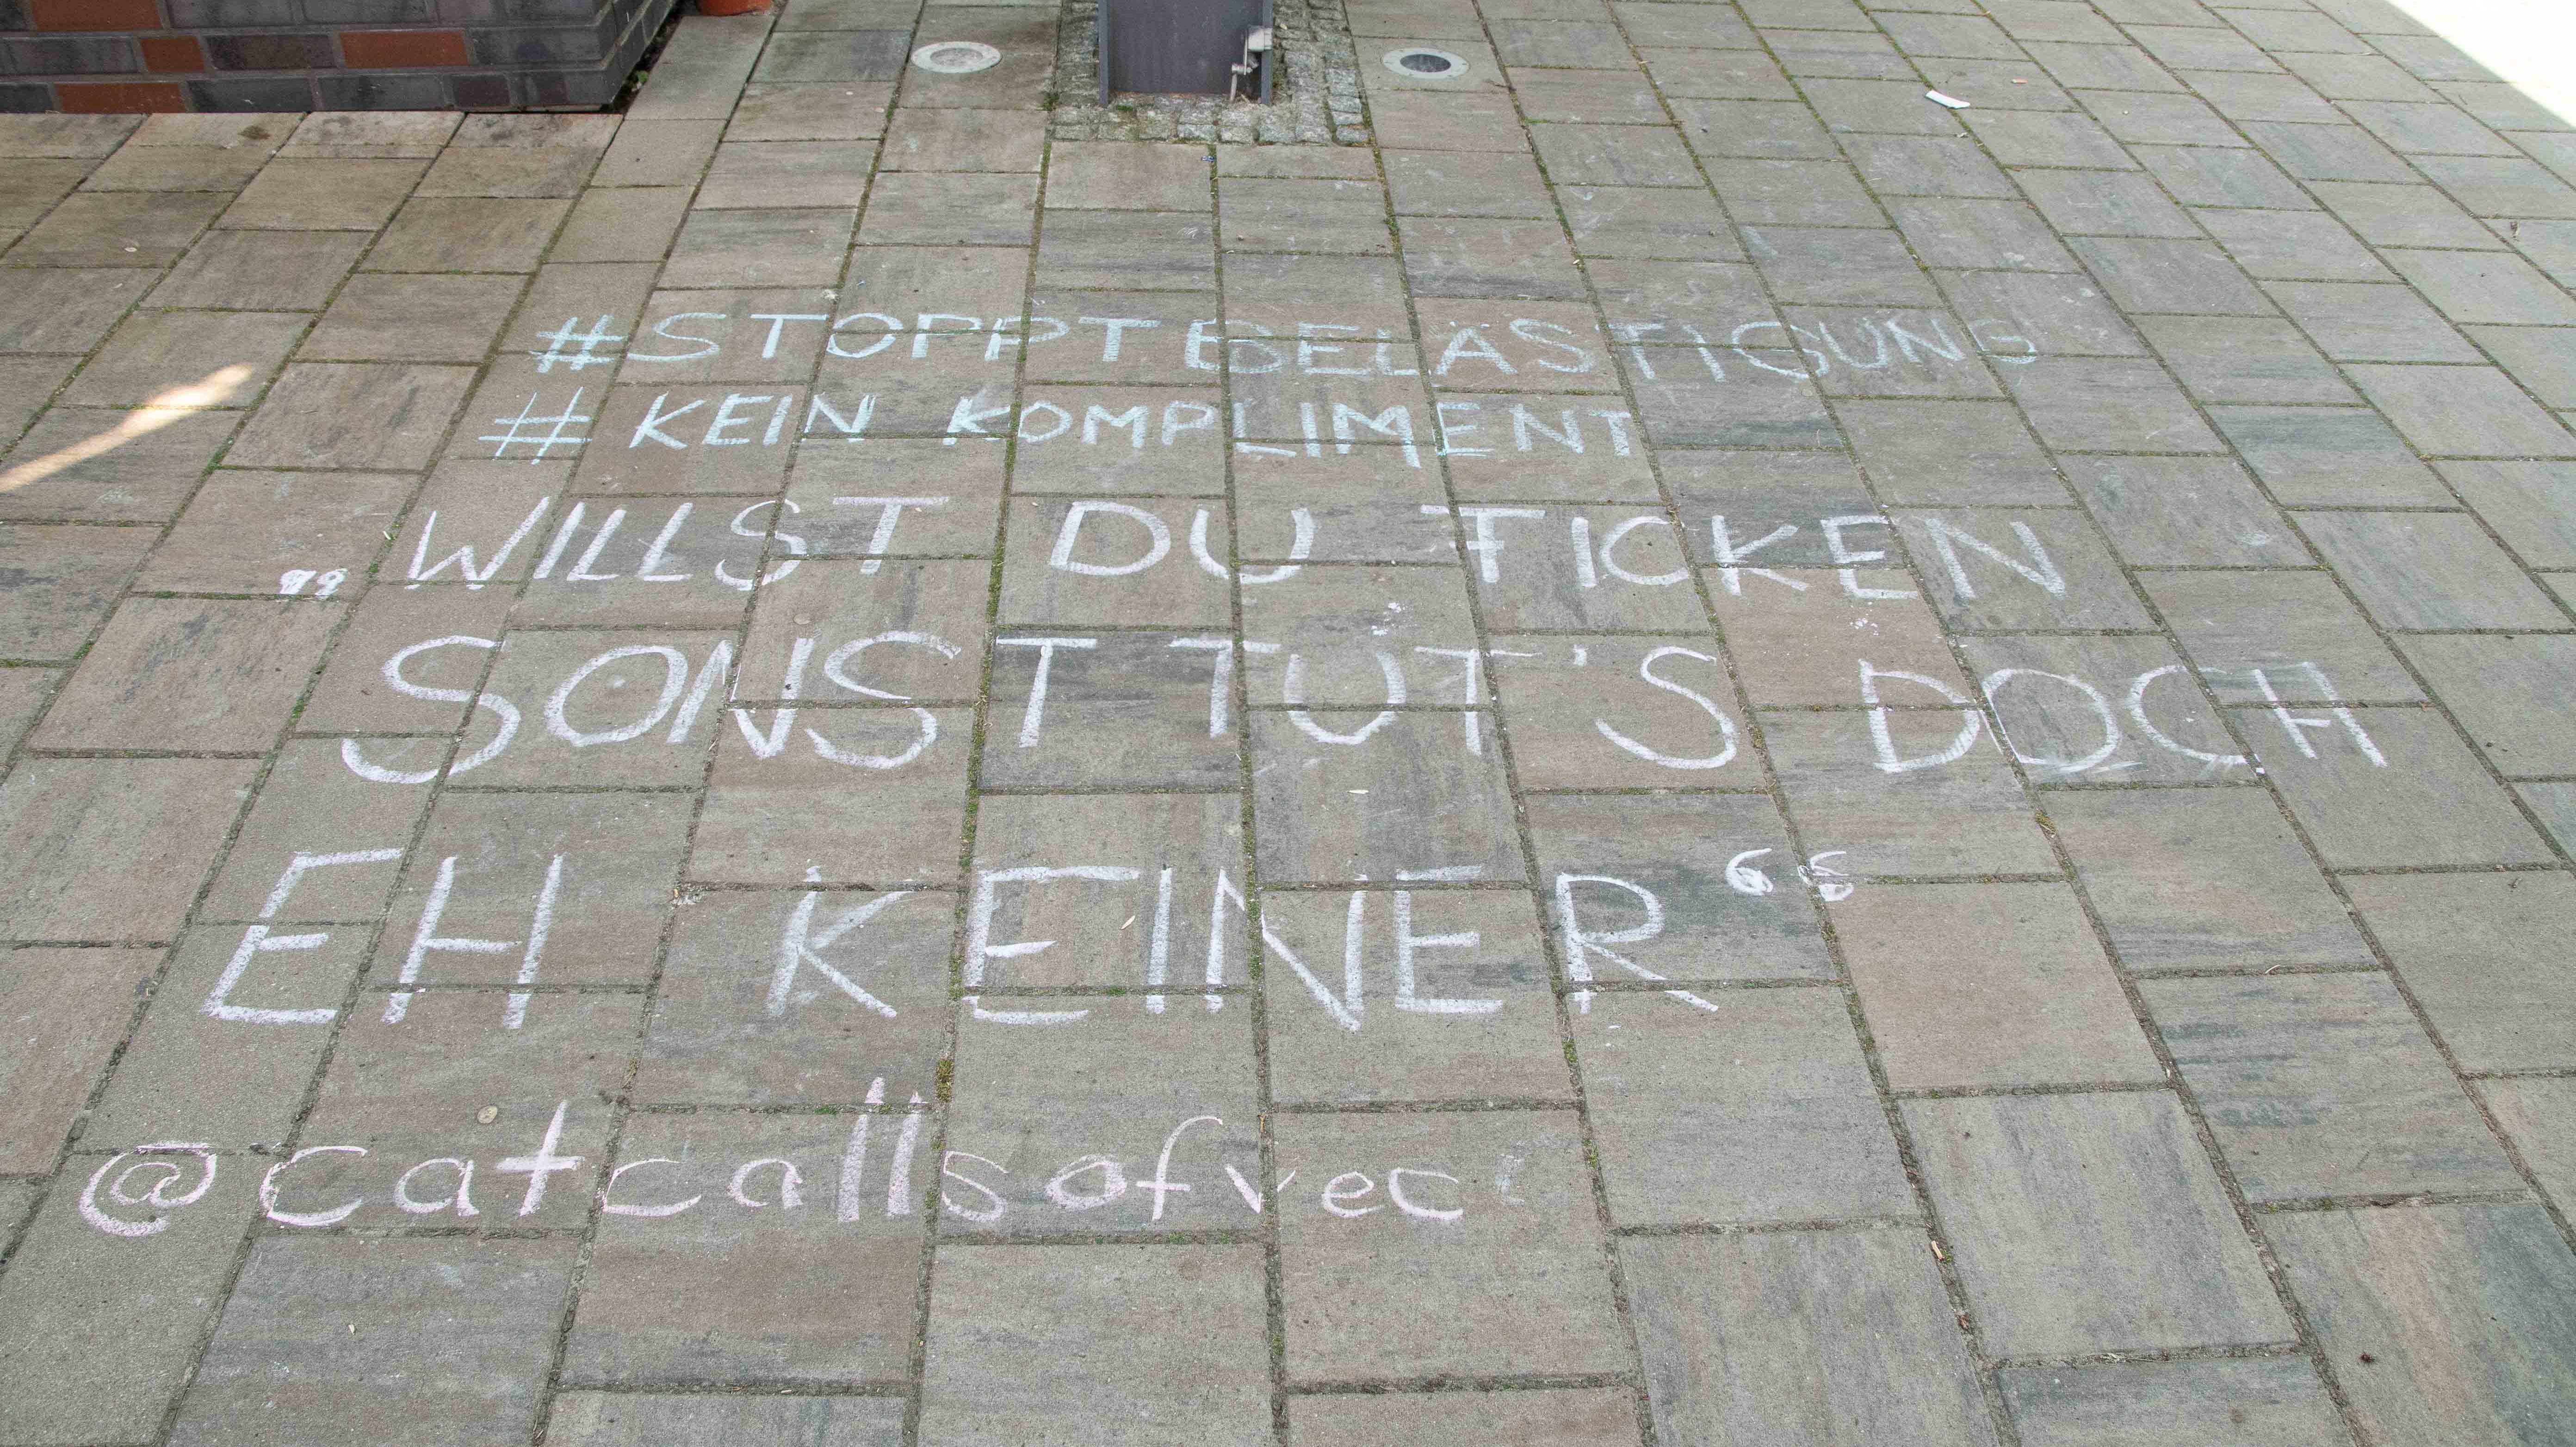 #STOPPTBELÄSTIGUNG
# KEIN KOMPLIMENT
„WILLST DU FICKEN
SONST TUT'S DOCH
EH KEINER“
@catcallsofvec